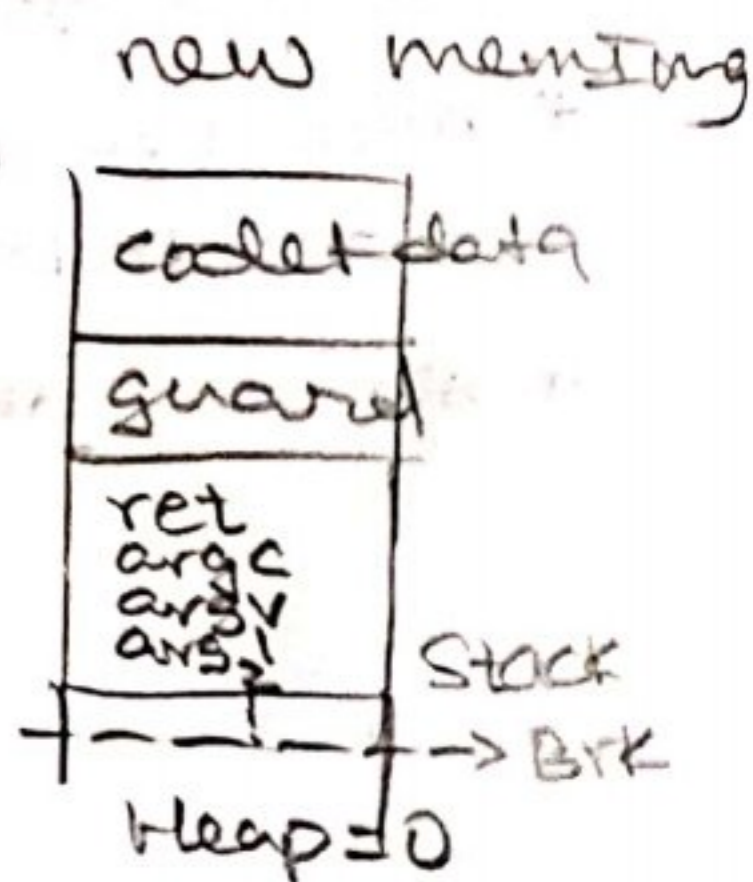 new memImg
code+data
guard
ret
argc
argv
arg1
Stack
Brk
Heap=0